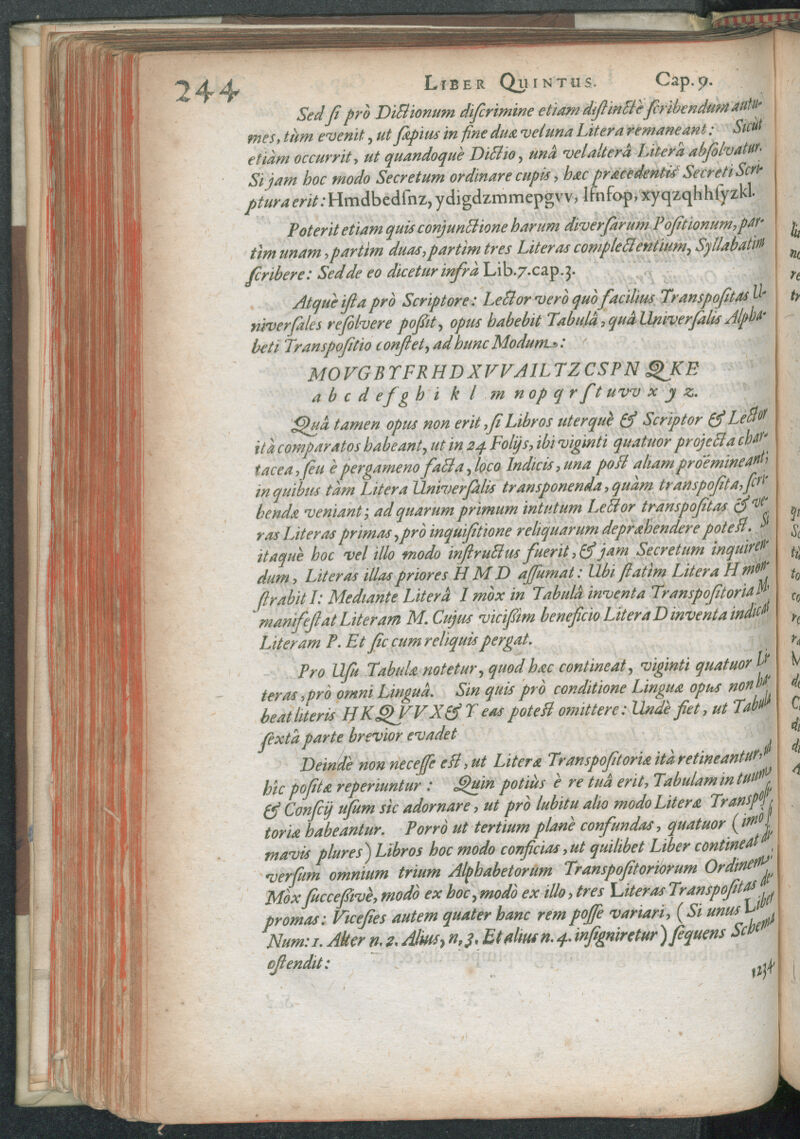 244 LIBER QUINTUS. Cap. 9.
Sed ſi prò Dictionum diſcrimine etiam diſtinctè ſcribendum autu-
mes, tùm evenit, ut ſæpius in fine duæ vel una Litera remaneant: Sicut
etiàm occurrit, ut quandoquè Dictio, unâ vel alterâ Literâ abſolvatur.
Si jam hoc modo Secretum ordinare cupis, hæc præcedentis Secreti Scri-
ptura erit: Hmdbedſnz, ydigdzmmepgvv, lfnfop, xyqzqhhſyzkl.
Poterit etiam quis conjunctione harum diverſarum Poſitionum, par-
tìm unam, partìm duas, partìm tres Literas complectentium, Syllabatìm
ſcribere: Sed de eo dicetur infrà Lib. 7. cap. 3.
Atquè iſta prò Scriptore: Lector verò quò facilius Transpoſitas U-
niverſales reſolvere poßit, opus habebit Tabulâ, quâ Univerſalis Alpha-
beti Transpoſitio conſtet, ad hunc Modum:
MOVGBTFRHDXVVAILTZCSPN QKE
a b c d e f g h i k l m n o p q r ſ t u vv x y z.
Quâ tamen opus non erit, ſi Libros uterquè & Scriptor & Lector
ità comparatos habeant, ut in 24 Folijs, ibi viginti quatuor projecta char-
tacea, ſeu è pergameno facta, loco Indicis, una poſt aliam proëmineant,
in quibus tàm Litera Univerſalis transponenda, quàm transpoſita, ſcri-
bendæ veniant; ad quarum primum intutum Lector transpoſitas & ve-
ras Literas primas, prò inquiſitione reliquarum depræhendere poteſt. Si
itaquè hoc vel illo modo inſtructus fuerit, & jam Secretum inquiren-
dum, Literas illas priores H M D aſſumat: Ubi ſtatìm Litera H mon-
ſtrabit I: Mediante Literâ I mòx in Tabulâ inventa Transpoſitoria M,
manifeſtat Literam M. Cujus vicißìm beneficio Litera D inventa indicat
Literam P. Et ſic cum reliquis pergat.
Pro Uſu Tabulæ notetur, quod hæc contineat, viginti quatuor Li-
teras, prò omni Linguâ. Sin quis prò conditione Linguæ opus non ha-
beat literis H K Q VV X & Y eas poteſt omittere: Undè fiet, ut Tabula
ſextâ parte brevior evadet
Deindè non neceſſe eſt, ut Literæ Transpoſitoriæ ità retineantur, ut
hîc poſitæ reperiuntur: Quin potiùs è re tuâ erit, Tabulam in tuum,
& Conſcij uſum sìc adornare, ut prò lubitu alio modo Literæ Transpoſi-
toriæ habeantur. Porrò ut tertium planè confundas, quatuor (imò ſi
mavis plures) Libros hoc modo conficias, ut quilibet Liber contineat di-
verſum omnium trium Alphabetorum Transpoſitoriorum Ordinem:
Mòx ſucceßivè, modò ex hoc, modò ex illo, tres Literas Transpoſitas de-
promas: Viceſies autem quater hanc rem poſſe variari, (Si unus Liber
Num: 1. Alter n. 2. Alius, n, 3. Et alius n. 4. inſigniretur) ſequens Schema
oſtendit:
1234